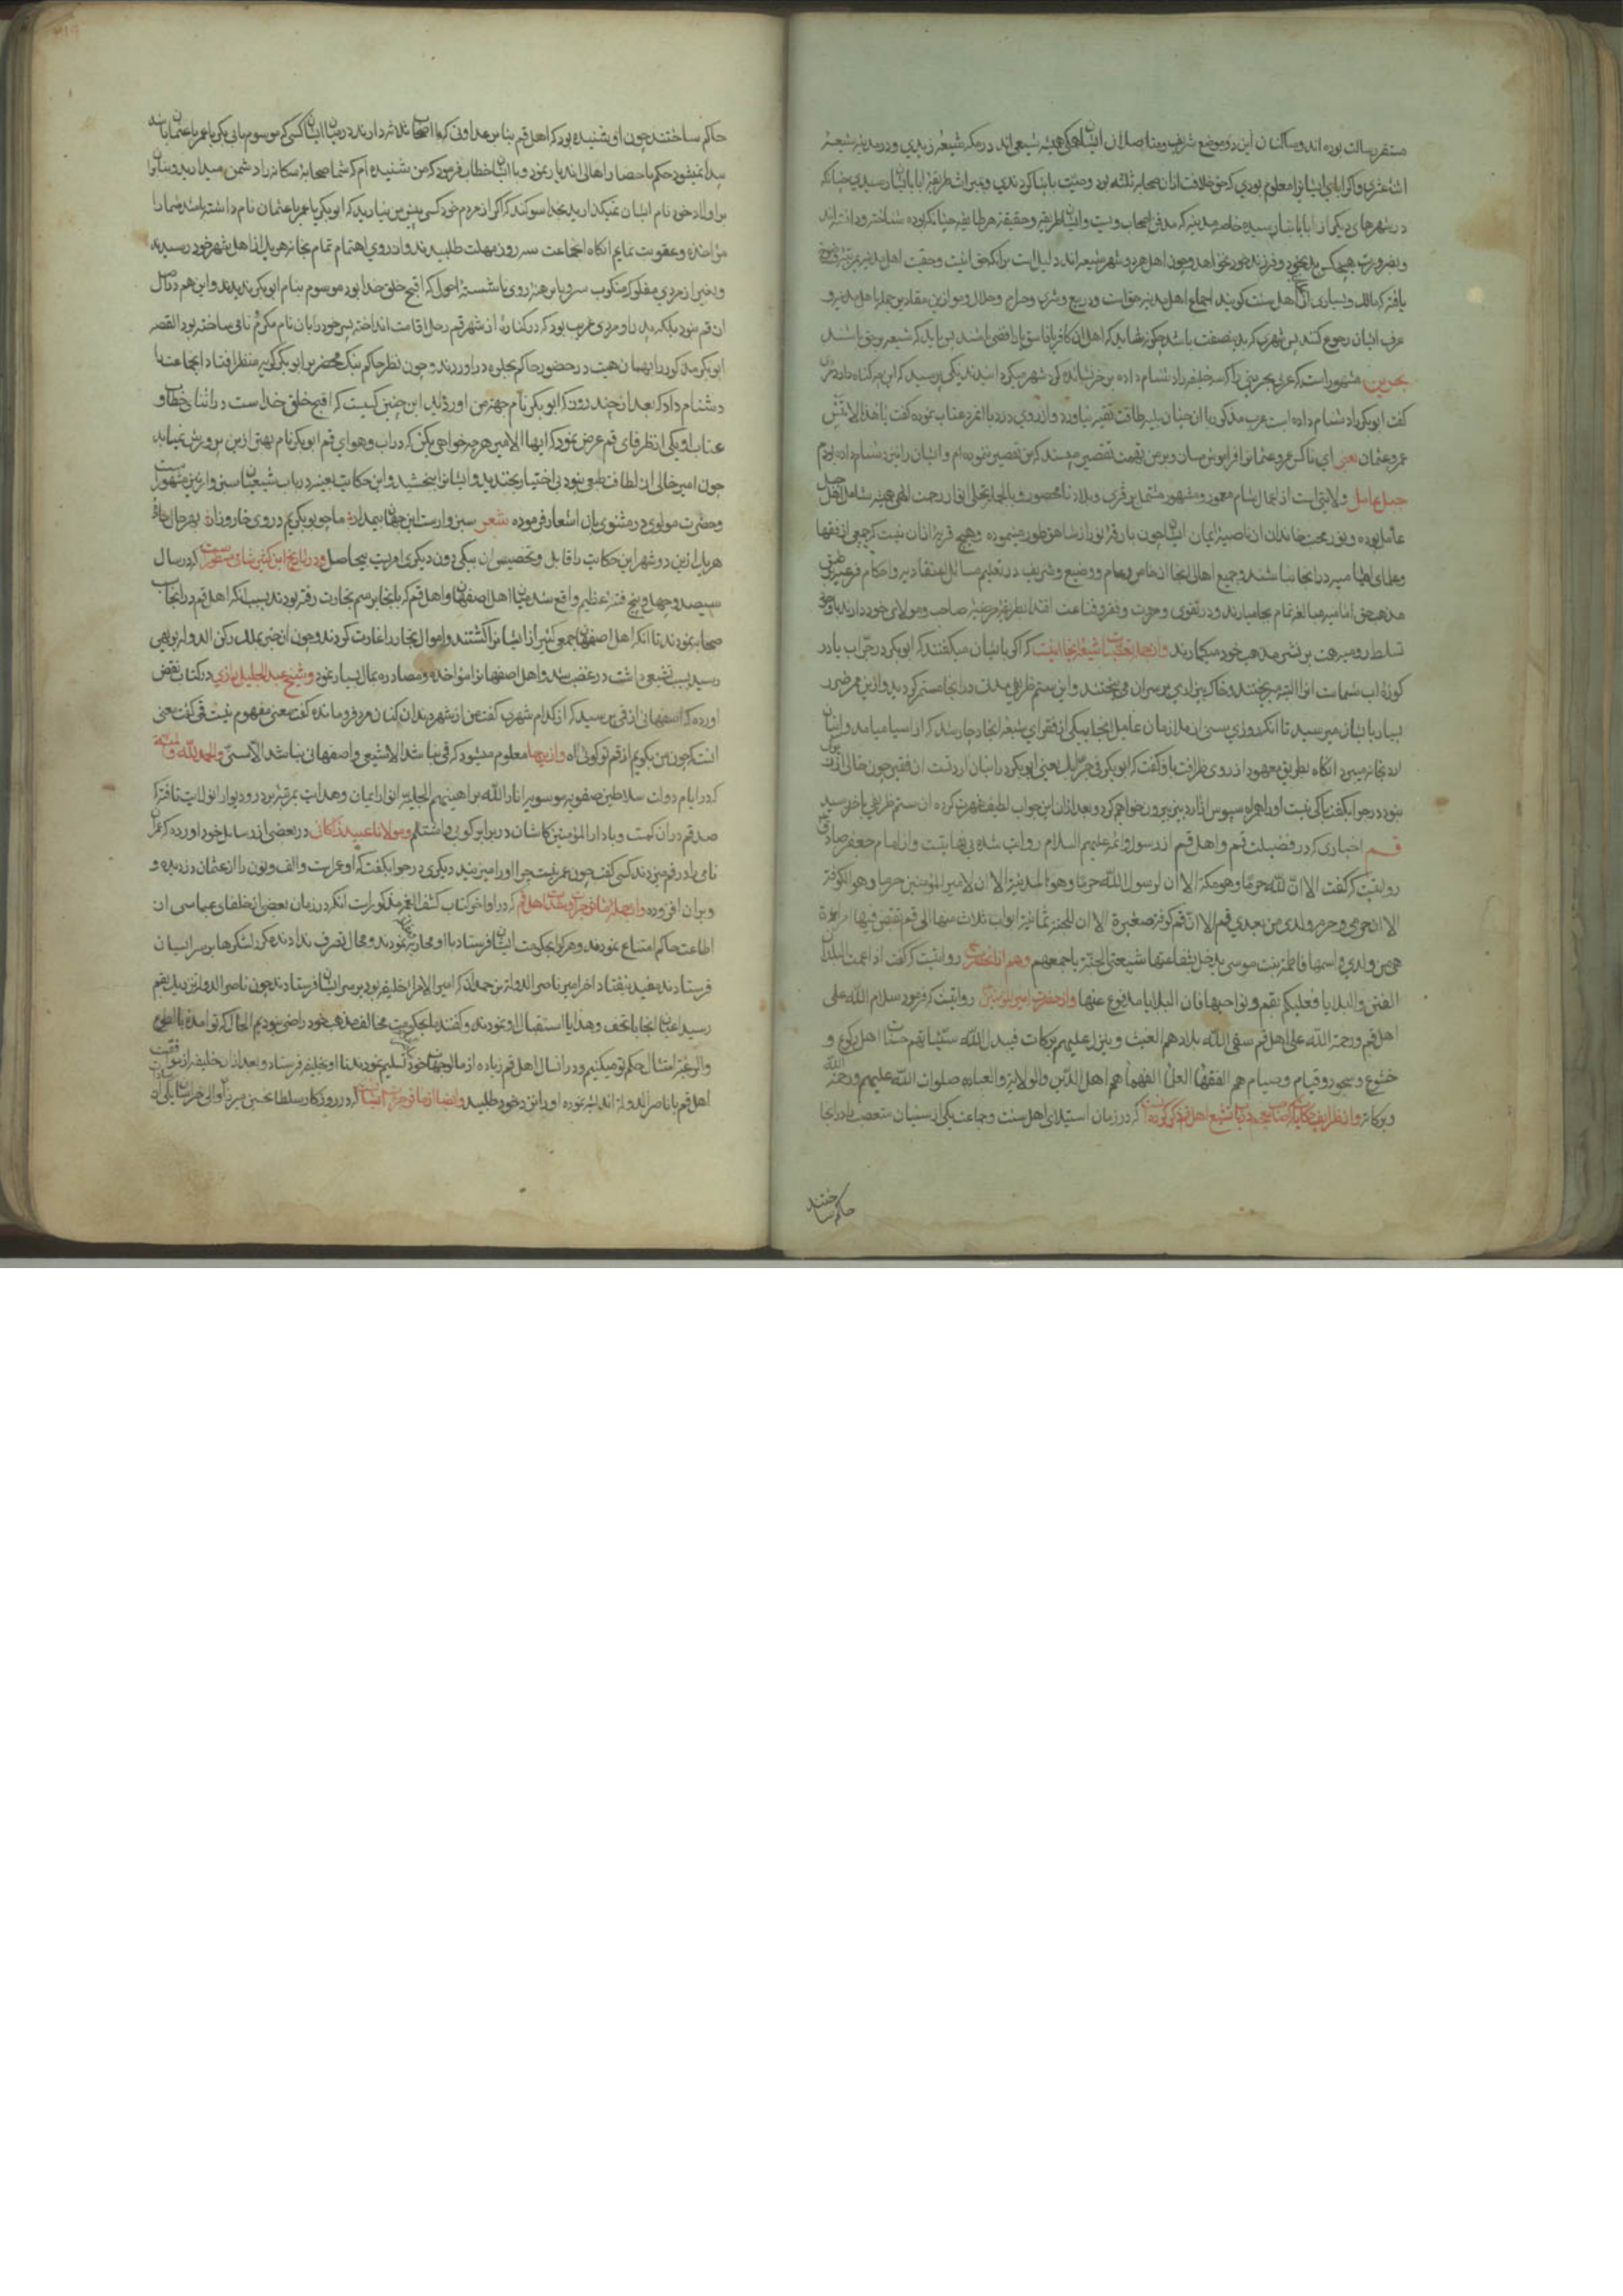 مستقر رسالت بوده اند و ساکنان این دو موضع شریف و متاصلان ایشان همیشه شیعی اند در مکه شیعهٔ زیدی و در مدینه شیعهٔ
اثنا عشری و اگر ابای ایشانرا معلوم بودی که حق خلافت از ان صحابه ثلثه بود وصیت بابنا کردندی
در شهرهای دیگر از ابا بابنا رسیده خاصه مدینه که مدفن اصحاب و
و بضرورت هیچکس بد بخود و فرزند خود نخواهد و چون اهل هر دو شهر شیعه اند دلیل است برانکه حق
یافته که مالک و بسیاری از اهل سنت کویند اجماع اهل مدینه حق است و در بیع و شری و حرام و حلال و موازین
عرف ایشان رجوع کنند پس شهری که بدین صفت باشد چکونه شاید که اهل ان کافر یا فاسق یا رافضی باشند
بحرین مشهور است که عربی بحرینی را که سه خلیفه را دشنام داده بر خر نشانده کرد شهر میکردانیدند یکی پرسید که این چه کناه دارد
کفت ابوبکر را دشنام داده است عرب مذکور با ان حال طاقت نیاورد و از روی درد با انمرد عتاب نموده کفت یا هذا لا تنس
عمر و عثمان یعنی ای ناکس عمر و عثمانرا فراموش مساز و بر من تهمت تقصیر مبند که من تقصیر ننموده ام و ایشان را نیز دشنام داده بودم
جبل عامل ولایتی است از اعمال شام معمور و مشهور مشتمل بر قری و بلاد نامحصور و بالجمله تجلی انوار رحمت الهی همیشه شامل اهل
عامل بوده و نور محبت خاندان از ناصیهٔ ایمان ایشان چون بارقهٔ نور از شاهق طور مینموده و هیچ قریه از ان نیست که جمعی از فقها
و علمای امامیه در انجا نباشند و جمیع اهالی انجا از خاص و عام و وضیع و شریف در تعلیم مسائل اعتقادیه و احکام فرعیه
مذهب حق امامیه مبالغه تمام بجا میارند و در تقوی و مروت و فقر و قناعت اقتدا بطریقهٔ مرضیهٔ صاحب و مولای خود دارند
تسلط رومیه همت بر نشر مذهب خود میکمارند و از جمله تعصبات شیعهٔ انجا اینست که اکر با ایشان میکفتند که ابوبکر در جراب یا در
کوزهٔ اب شماست انرا البته میریختند و خاک بیزاری بر سر ان می بیختند و این ستم ظریفی مدت در انجا مستمر کردید و از ین ممر ضرر
بسیار بایشان میرسید تا انکه روزی سنی از ملازمان عامل انجا بیکی از فقرای شیعهٔ انجا دچار شد که از اسیا میامد و انبان
ارد بخانه میبرد انکاه بطریق معهود از روی ظرافت با و کفت که ابوبکر فی جرابک یعنی ابوبکر در انبان ارد تست ان فقیر چون خالی از
نبود در جواب کفت باکی نیست او را همراه سبوس از ارد بیز بیرون خواهم کرد و بعد از ان این جواب لطیف شهرت کرده ان ستم ظریفی باخر رسید
قم اخباری که در فضیلت قم و اهل قم از رسول و ائمه علیهم السلام روایت شده بی نهایتست و از امام جعفر صادق
روایتست که کفت الا ان لله حرما و هو مکة الا ان لرسول الله حرما و هو المدینة الا ان لامیر المؤمنین حرما و هو الکوفة
الا ان حرمی و حرم ولدی من بعدی قم الا ان قم کوفة صغیرة الا ان للجنة ثمانیة ابواب ثلاث منها الی قم تقبض فیها امراة
هی من ولدی و اسمها فاطمة بنت موسی یدخل بشفاعتها شیعتی الجنة باجمعهم و هم از انحضرت روایتست که کفت اذا عمت البلدان
الفتن و البلایا فعلیکم بقم و نواحیها فان البلایا مدفوع عنها و از حضرت امیر المؤمنین روایتست که فرمود سلام الله علی
اهل قم و رحمة الله علی اهل قم سقی الله بلادهم الغیث و ینزل علیهم برکات فیبدل الله سیئاتهم حسنات اهل رکوع و
خشوع و سجود و قیام و صیام هم الفقهاء العلماء الفهماء هم اهل الدین و الولایة و العبادة صلوات الله علیهم و رحمة الله
و برکاته و از نظرایف حکایات که در باب تشیع اهل قم ذکر کرده اند که در زمان استیلای اهل سنت و جماعت یکی از سنیان متعصب را در انجا
حاکم ساختند
حاکم ساختند چون او شنیده بود که اهل قم بنابر عداوتی که با اصحاب ثلاثه دارند در میان ایشان کسی که موسوم بابی بکر یا عمر یا عثمان باشد
پیدا نمیشود حکم باحضار اهالی اند یار نمود و با ایشان خطاب فرمود که من شنیده ام که شما صحابه سکانه را دشمن میدارید و بنابران
بر اولاد خود نام ایشان نمیکذارید بخدا سوکند که اکر از مردم خود کسی پیش من نیارید که ابوبکر یا عمر یا عثمان نام داشته باشد شما را
مؤاخذه و عقوبت نمایم انکاه انجماعت سه روز مهلت طلبیدند و از روی اهتمام تمام بخانه هر یک از اهل شهر خود رسیدند
و بغیر از مردی مفلوک منکوب سر و پا برهنه روی ناشسته احول که اقبح خلق خدا بود موسوم بنام ابوبکر ندیدند و این هم در اصل
از قم نبود بلکه پدر او مردی غریب بود که در کنارهٔ از شهر قم رحل اقامت انداخته پسر خود را بان نام مکرم نامی ساخته بود القصه
ابوبکر مذکور را بهمان هیئت در حضور حاکم بجلوه در اوردند و چون نظر حاکم بیک محضر ابوبکر کریه منظر افتاد انجماعت را
دشنام داد که بعد از چند روز که ابوبکر نام جهت من اورده اید این چنین کسیست که اقبح خلق خداست در اثنای خطاب و
عتاب او یکی از ظرفای قم عرض نمود که ایها الامیر هر چه خواهی بکن که در اب و هوای قم ابوبکر نام بهتر ازین پرورش نمییابد
چون امیر خالی از لطافت طبعی نبود بی اختیار بخندید و ایشانرا ببخشید و این حکایت بعینه در باب شیعیان سبزوار نیز مشهور است
و حضرت مولوی در مثنوی بان اشعار فرموده شعر سبزوارست این جهان بیمدار ما چو بوبکریم در وی خار و زار بهر حال چون
هر یک ازین دو شهر این حکایت را قابل و تخصیص ان بیکی دون دیکری امریست بیحاصل و در تاریخ ابن کثیر شامی مسطور است که در سال
سیصد و چهل و پنج فتنه عظیم واقع شد میان اهل اصفهان و اهل قم که بانجا برسم تجارت رفته بودند بسبب انکه اهل قم در انجا سب
صحابه نمودند تا انکه اهل اصفهان جمعی کثیر از ایشانرا کشتند و اموال تجار را غارت کردند و چون ان خبر بملک رکن الدوله بویهی
رسید بسبب تشیعی که داشت در غضب شد و اهل اصفهانرا مؤاخذه و مصادره بمال بسیار نمود و شیخ عبد الجلیل رازی در کتاب نقض
اورده که اصفهانی از قمی پرسید که از کدام شهری کفت من از شهر دندان کنان مرد فرو مانده کفت معنی مفهوم نیست قمی کفت یعنی
انست که چون من بکویم از قم تو کوئی اه و از ینجا معلوم میشود که قمی نباشد الا شیعی و اصفهانی نباشد الا سنی و الحمد لله و المنة
که در ایام دولت سلاطین صفویه موسویه انار الله براهینهم الجلیه انوار ایمان و هدایت بمرتبهٔ بر در و دیوار انولایت تافته که
صد قم در ان کمست و با دار المؤمنین کاشان در برابر کوئی و اشتلم و مولانا عبید ذاکانی در بعضی از رسایل خود اورده که عمران
نامی را در قم میزدند کسی کفت چون عمر نیست چرا او را میزنید دیکری در جواب کفت که او عمر است و الف و نون را از عثمان دزدیده و
بران افزوده و از جمله اهل قم که در اواخر کتاب کشف الغمه مذکور است انکه در زمان بعضی از خلفای عباسی از
اطاعت حاکم امتناع نمودند و هر که را بحکومت ایشان فرستاد با او محاربه نمودند و مجال تصرف ندادند مکررا لشکرها بر سر ایشان
فرستادند مفید نیفتاد اخر امیر ناصر الدوله بن حمدان که امیر الامرا خلیفه بود بر سر ایشان فرستادند چون ناصر الدوله نزدیک بقم
رسید اعیان انجا با تحف و هدایا استقبال او نمودند و کفتند ما بحکومت مخالف مذهب خود راضی نبودیم الحال که تو امدهٔ بالطوع
و الرغبة امتثال حکم تو میکنیم و در انسال اهل قم زیاده از مال وجهات خود تسلیم نمودند تا او بخلیفه فرستاد و بعد از ان خلیفه از
اهل قم با ناصر الدوله اندیشه نموده او را نزد خود طلبید و ایضا که در روزکار سلطان حسین میرزا والی خراسان